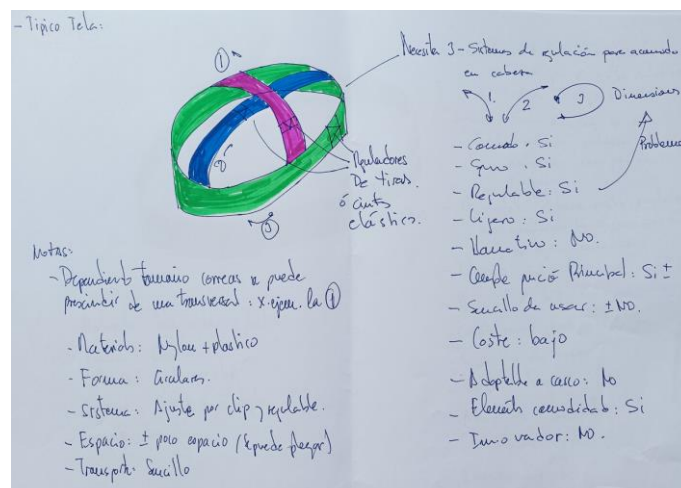 - Típico Tela:
①
2
③
Reguladores
De tiras.
ó cinta
elástica.
Necesita 3 - Sistemas de regulación para acomodo
en cabeza
1.
2
3
Dimensiones
Problema
- Comodo : Si
- : Si
- Regulable : Si
- Ligero : Si
- Llamativo : No.
- Cumple Principal : Si ±
- Sencillo de usar : ± No.
- Coste : bajo
- Adaptable a casco : No
- Elemento comodidad : Si
- Innovador : No.
Notas:
- Dependiendo tamaño correas se puede
prescindir de una transversal : x ejem. la ①
- Materials : Nylon + plastico
- Forma : Circulares.
- Sistema : Ajuste por clip y regulable.
- Espacio : ± poco espacio (se puede plegar)
- Transporte : Sencillo